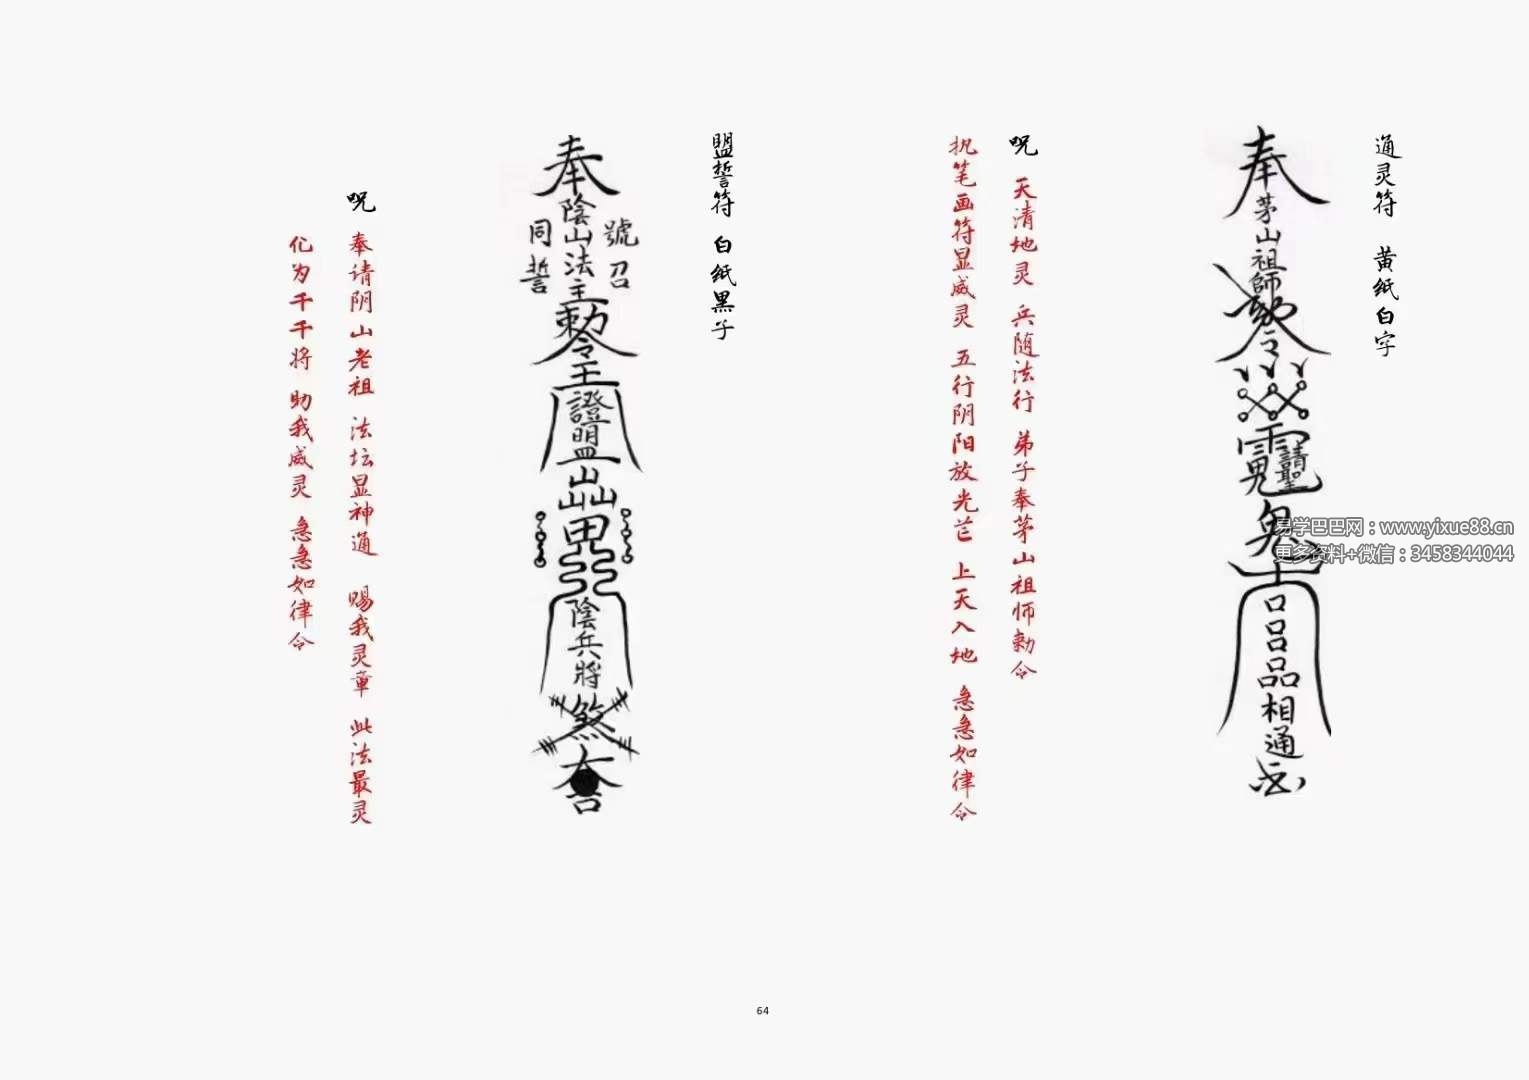 通灵符 黄纸白字
奉
茅山祖師
勅令
鬼
口
吕
品
相通
咒 天清地灵 兵随法行 弟子奉茅山祖师勅令
执笔画符显威灵 五行阴阳放光芒 上天入地 急急如律令
盟誓符 白纸黑子
奉
陰山法主
號召
同誓
勅令
主
證盟
陰兵將
煞
咒 奉请阴山老祖 法坛显神通 赐我灵章 此法最灵
化为千千将 助我威灵 急急如律令
易学巴巴网：www.yixue88.cn
更多资料+微信：3458344044
64